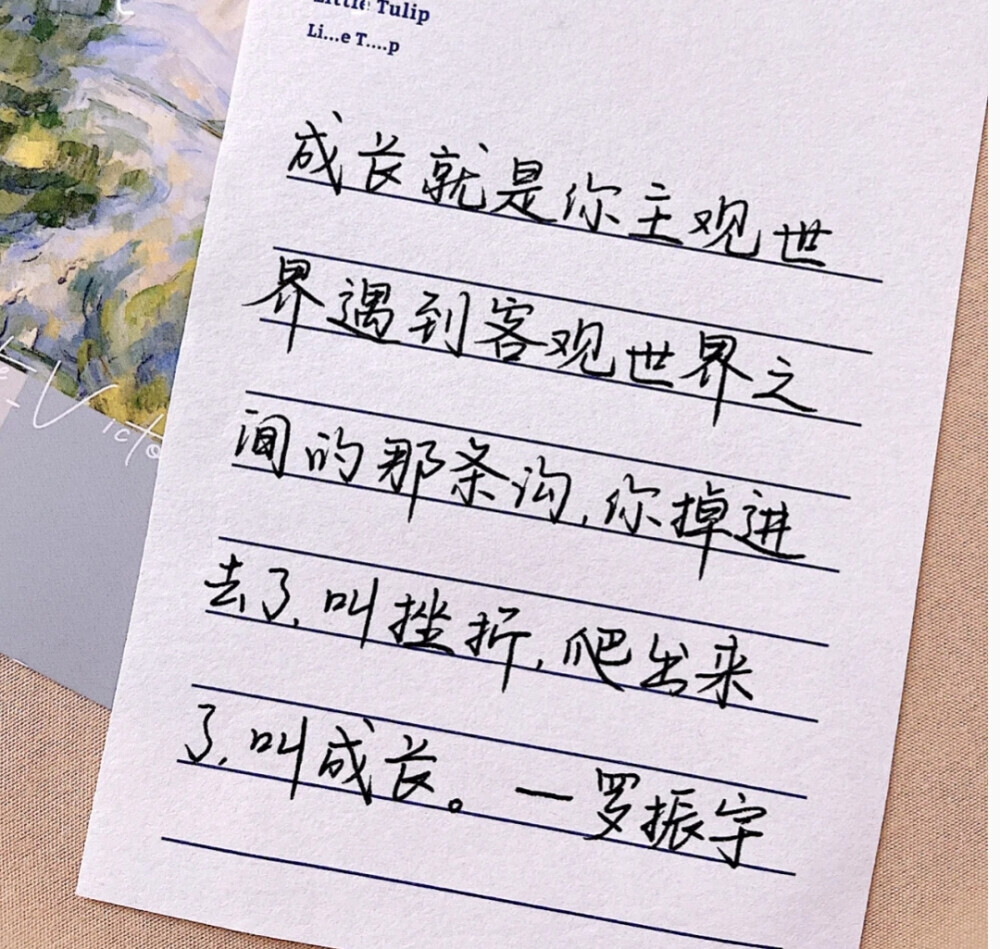 Little Tulip
Li...e T....p
成长就是你主观世
界遇到客观世界之
间的那条沟,你掉进
去了,叫挫折,爬出来
了,叫成长。一罗振宇
Victo